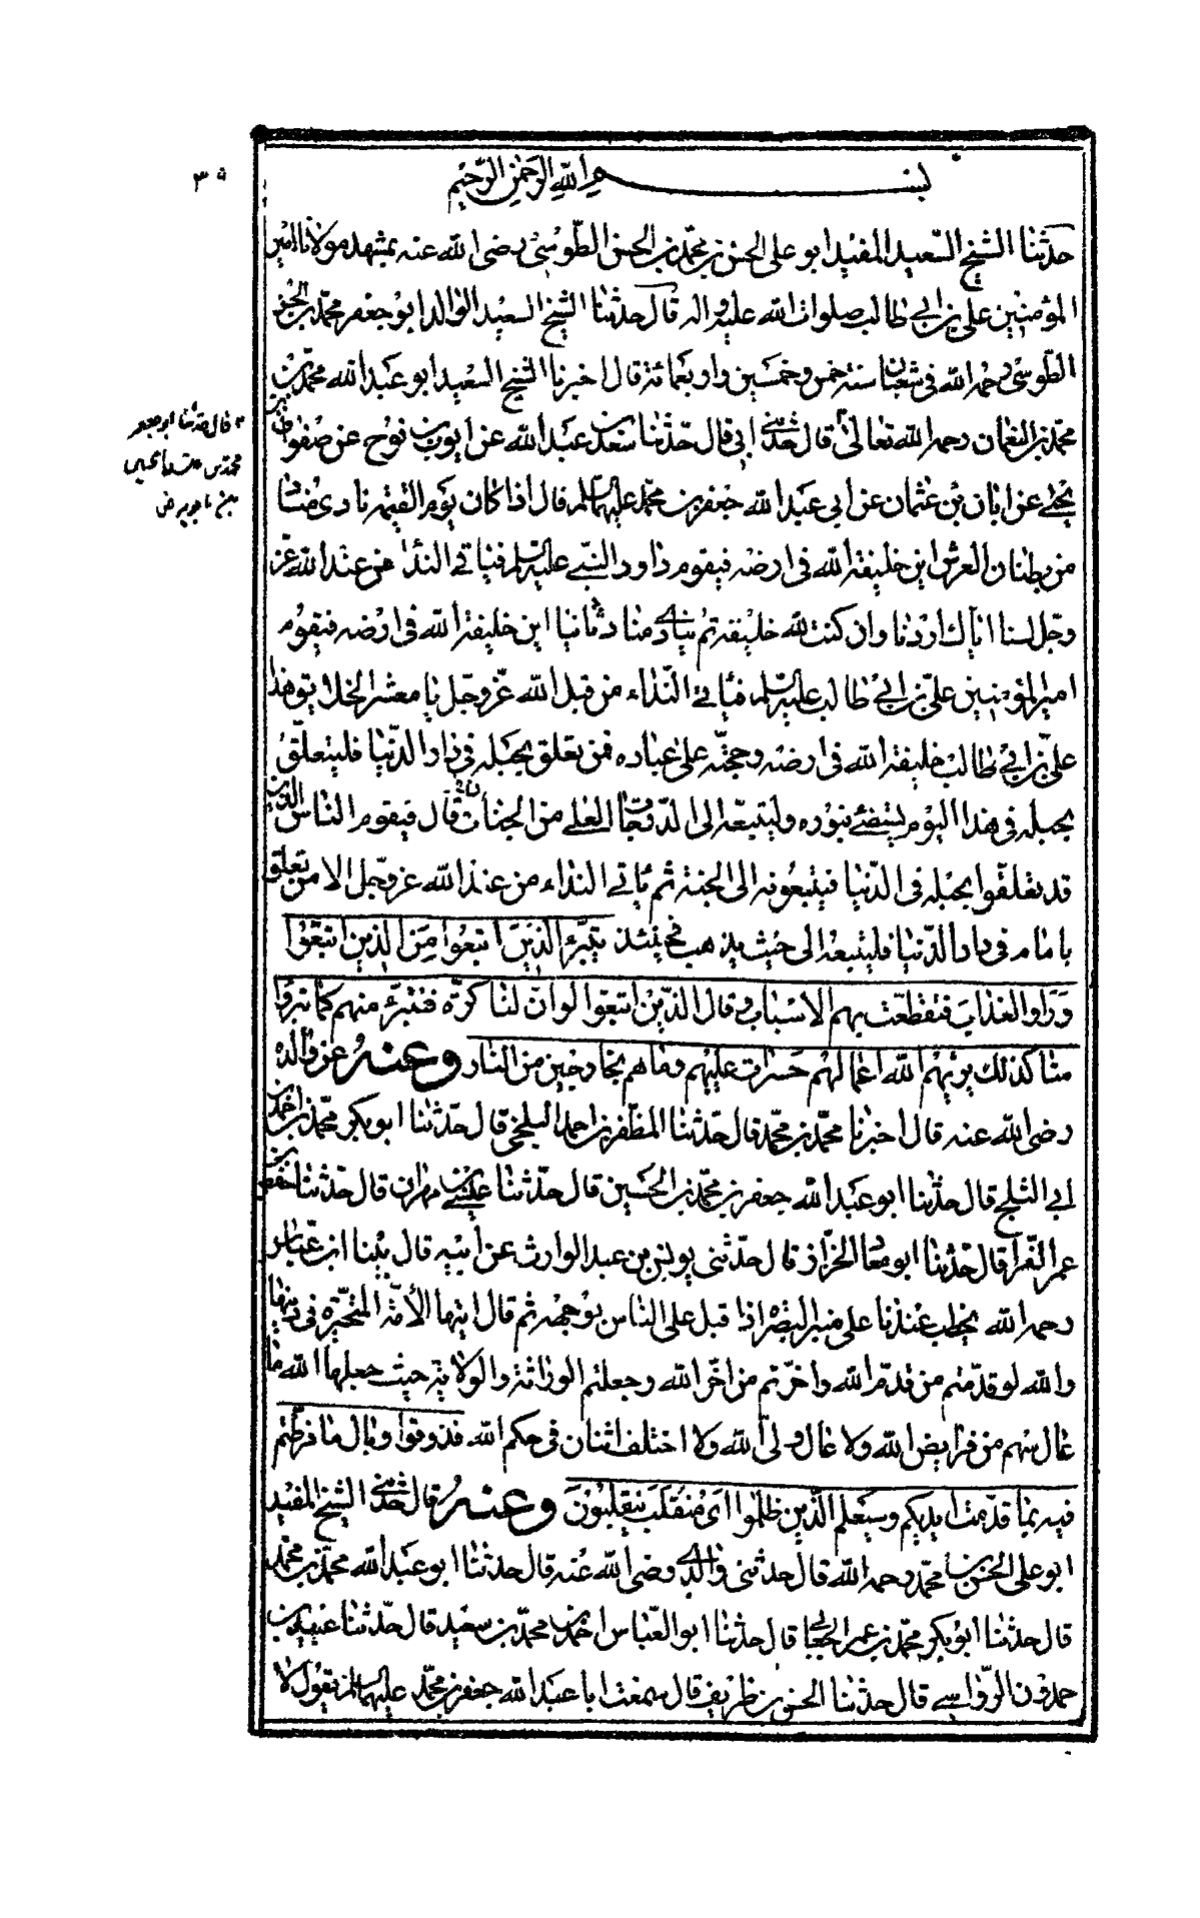 بسم الله الرحمن الرحيم
حدثنا الشيخ السعيد المفيد ابو علی الحسن بن محمد بن الحسن الطوسی رضی الله عنه بمشهد مولانا امير
المؤمنين علی بن ابی طالب صلوات الله عليه واله قال حدثنا الشيخ السعيد الوالد ابو جعفر محمد بن الحسن
الطوسی رحمه الله فی شعبان سنة خمس وخمسين واربعمائة قال اخبرنا الشيخ السعيد ابو عبد الله محمد بن
محمد بن النعمان رحمه الله تعالی قال حدثنی ابی قال حدثنا سعد بن عبد الله عن ايوب بن نوح عن صفوان بن
يحيی عن ابان بن عثمان عن ابی عبد الله جعفر بن محمد عليهما السلم قال اذا كان يوم القيمة نادی مناد
من بطنان العرش اين خليفة الله فی ارضه فيقوم داود النبی عليه السلم فياتی النداء من عند الله عز
وجل لسنا اياك اردنا وان كنت لله خليفة ثم ينادی مناد ثانيا اين خليفة الله فی ارضه فيقوم
امير المؤمنين علی بن ابی طالب عليه السلم فياتی النداء من قبل الله عز وجل يا معشر الخلايق هذا
علی بن ابی طالب خليفة الله فی ارضه وحجته علی عباده فمن تعلق بحبله فی دار الدنيا فليتعلق
بحبله فی هذا اليوم يستضئ بنوره وليتبعه الی الدرجات العلی من الجنات قال فيقوم الناس الذين
قد تعلقوا بحبله فی الدنيا فيتبعونه الی الجنة ثم ياتی النداء من عند الله عز وجل الا من تعلق
بامام فی دار الدنيا فليتبعه الی حيث يذهب فحينئذ يتبرء الذين اتبعوا من الذين اتبعوا
وراوا العذاب فتقطعت بهم الاسباب وقال الذين اتبعوا لو ان لنا كرة فنتبرء منهم كما تبرؤا
منا كذلك يريهم الله اعمالهم حسرات عليهم وما هم بخارجين من النار وعنه عن والده
رضی الله عنه قال اخبرنا محمد بن محمد قال حدثنا المظفر بن احمد البلخی قال حدثنا ابو بكر محمد بن احمد بن
ابی الثلج قال حدثنا ابو عبد الله جعفر بن محمد بن الحسين قال حدثنا عيسی بن مهران قال حدثنا حفص بن
عمر الفرا قال حدثنا ابو معاذ الخزاز قال حدثنی يونس بن عبد الوارث عن ابيه قال بينا ابن عباس
رحمه الله يخطب عندنا علی منبر البصرة اذا قبل علی الناس بوجهه ثم قال ايتها الامة المتحيرة فی دينها
والله لو قدمتم من قدم الله واخرتم من اخر الله وجعلتم الوراثة والولاية حيث جعلها الله ما
عال سهم من فرايض الله ولا عال ولی الله ولا اختلف اثنان فی حكم الله فذوقوا وبال ما فرطتم
فيه بما قدمت ايديكم وسيعلم الذين ظلموا ای منقلب ينقلبون وعنه قال حدثنی الشيخ المفيد
ابو علی الحسن بن محمد رحمه الله قال حدثنی والدی رضی الله عنه قال حدثنا ابو عبد الله محمد بن محمد
قال حدثنا ابو بكر محمد بن عمر الجعابی قال حدثنا ابو العباس احمد بن محمد بن سعيد قال حدثنا عبيد بن
حمدون الرواسی قال حدثنا الحسن بن ظريف قال سمعت ابا عبد الله جعفر بن محمد عليهما السلم يقول لا
قال حدثنا ابو جعفر
محمد بن